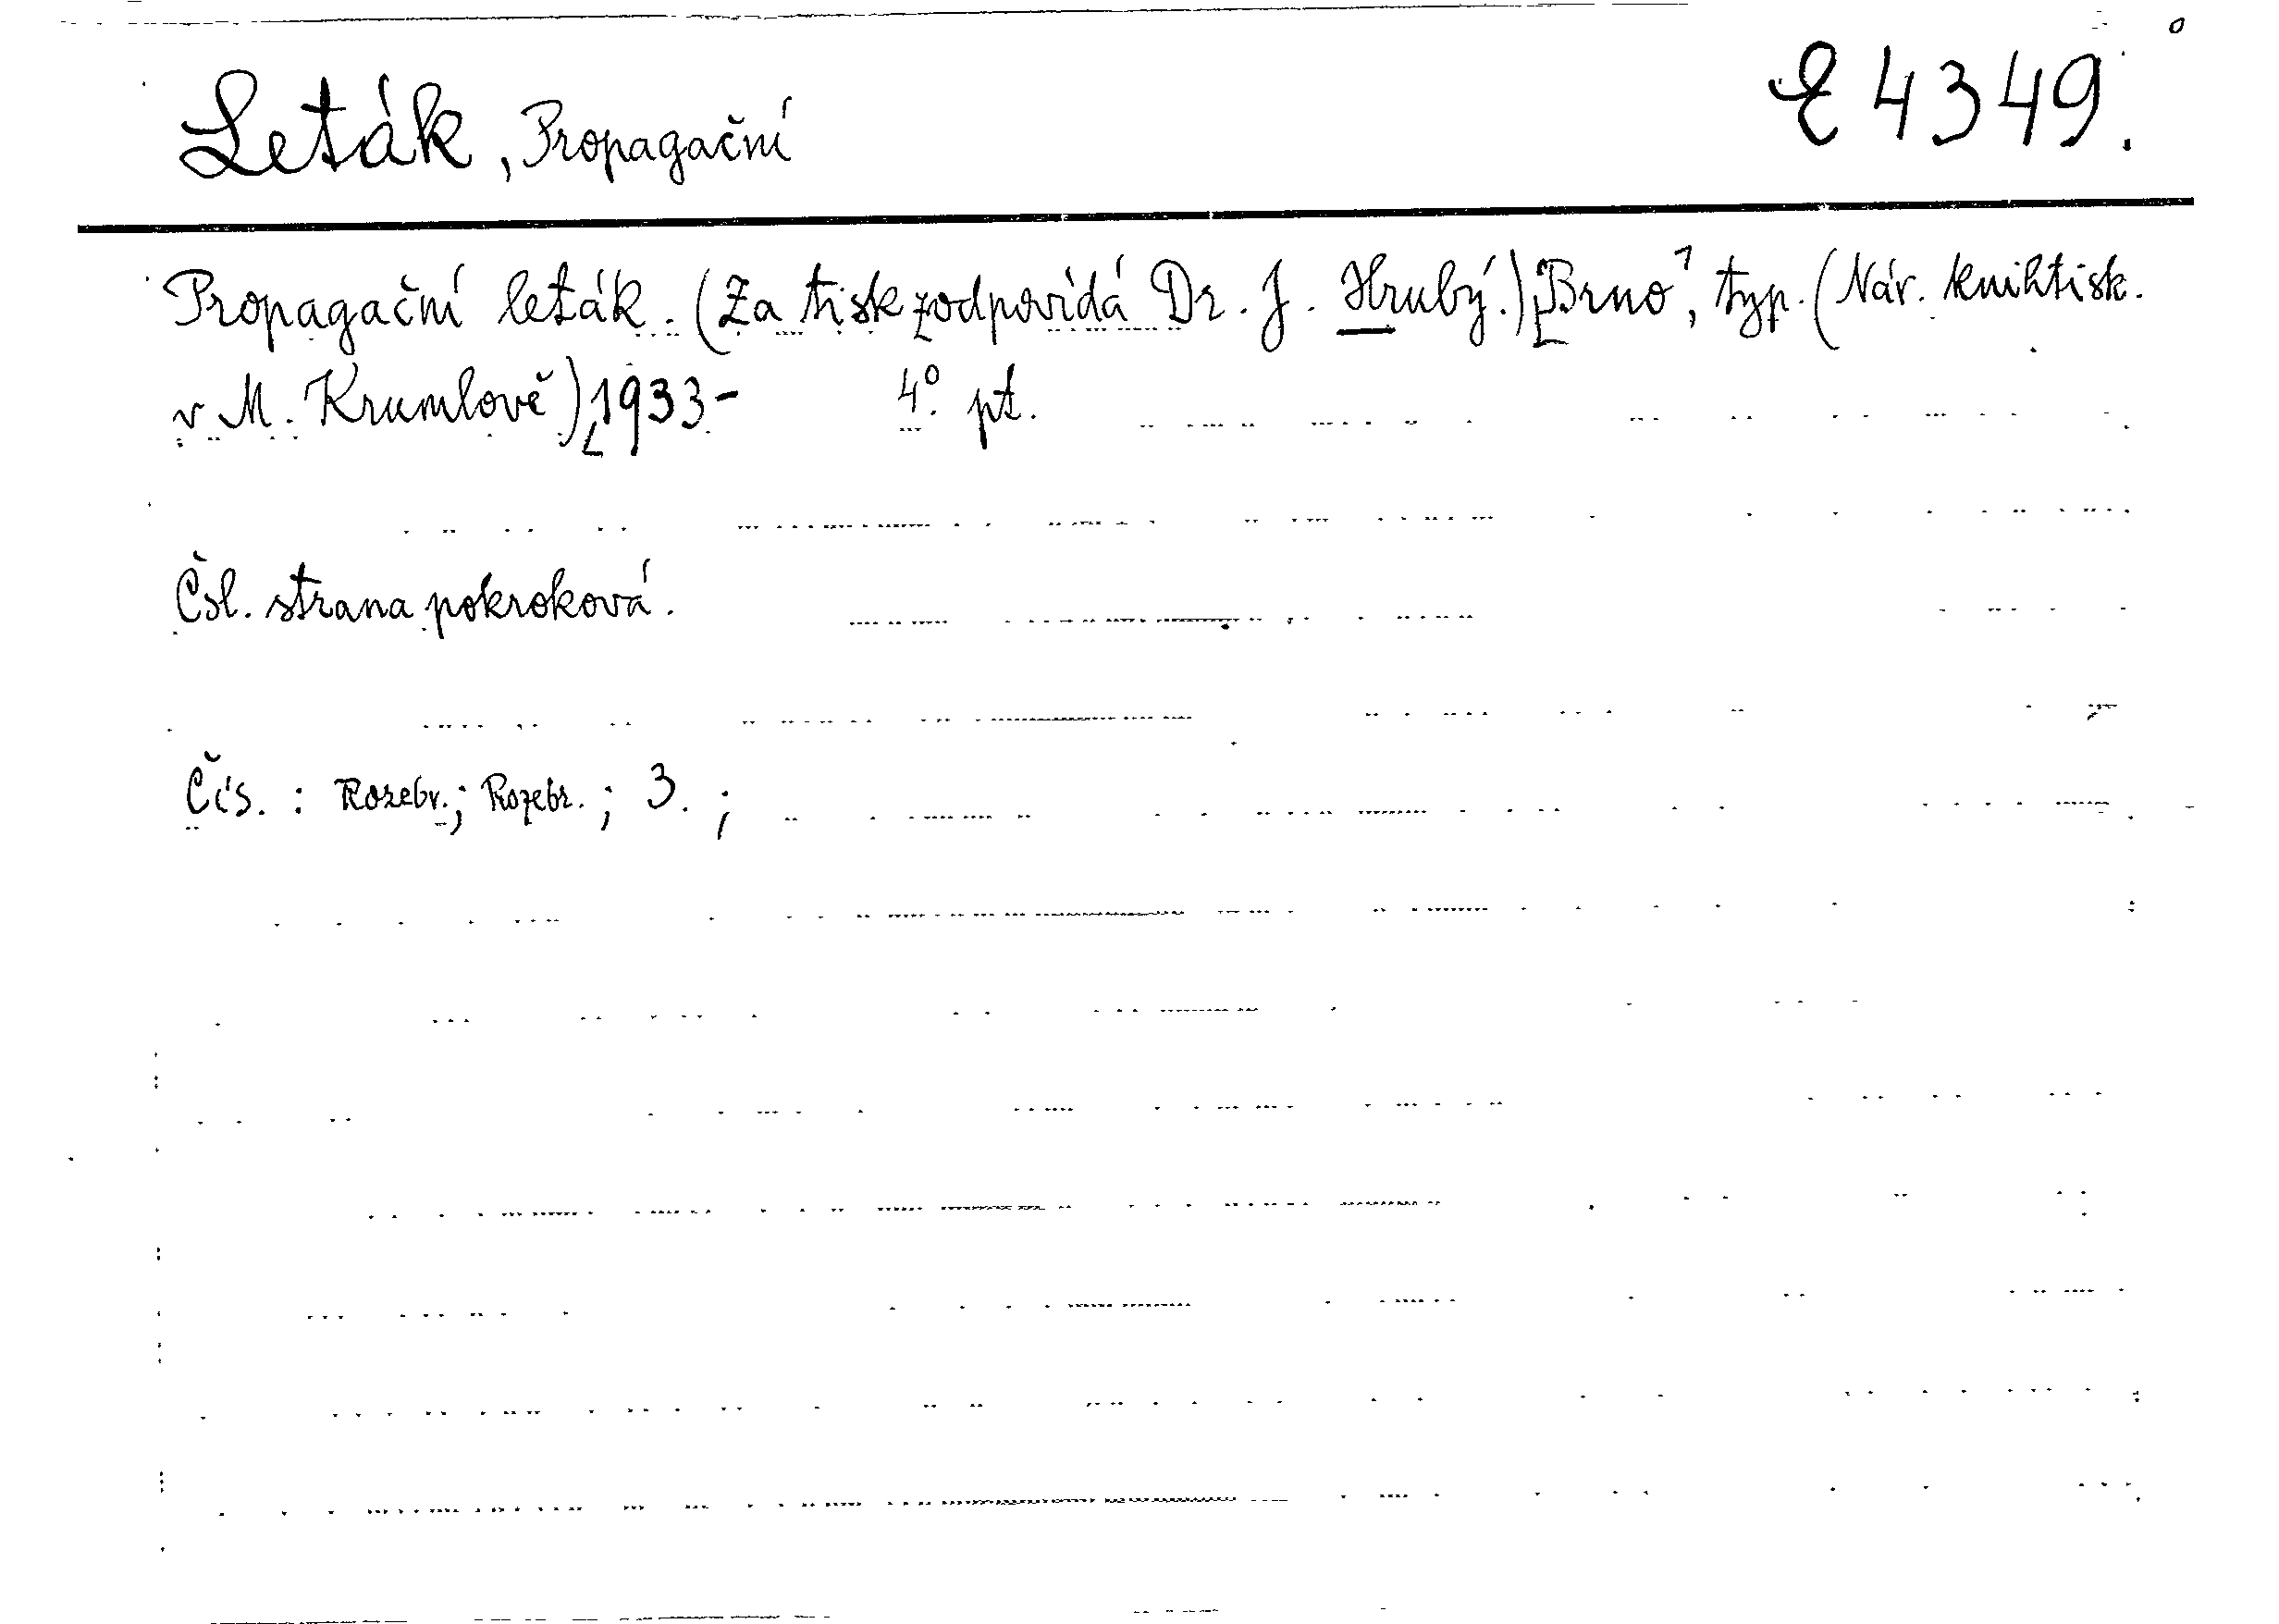 Leták, Propagační E 4349.
Propagační leták. (Za tisk zodpovídá Dr. J. Hrubý.) [Brno], typ. (Nár. knihtisk.
v M. Krumlově) [1933- 4°. pt.
Čsl. strana pokroková.
Čís. : Rozebr.; Rozebr. ; 3. ;